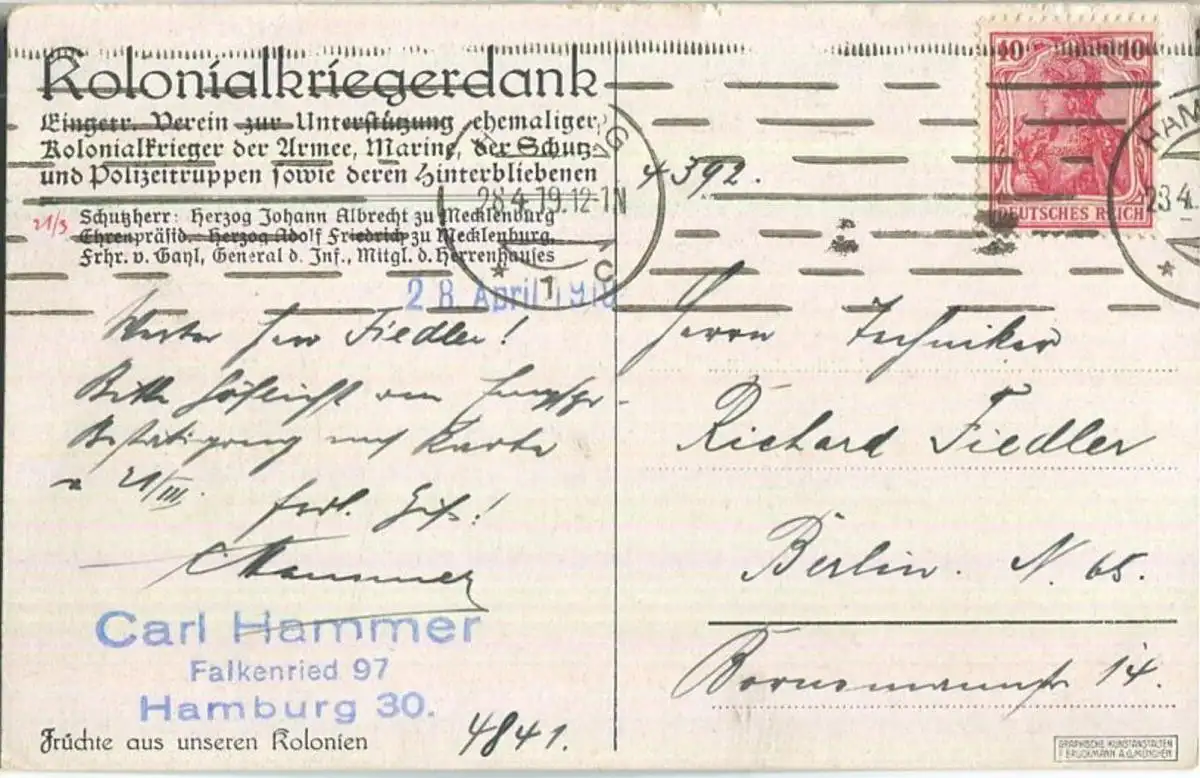 Kolonialkriegerdank
Eingetr. Verein zur Unterstützung ehemaliger
Kolonialkrieger der Armee, Marine, der Schutz-
und Polizeitruppen sowie deren Hinterbliebenen
Schutzherr: Herzog Johann Albrecht zu Mecklenburg
21/3
Ehrenpräsid. Herzog Adolf Friedrich zu Mecklenburg,
Frhr. v. Gayl, General d. Inf., Mitgl. d. Herrenhauses
28 April
Werter Herr Fiedler!
Bitte höflichst um
Bestätigung mein Karte
v 21/III.
frdl. Gruß!
CHammer
Carl Hammer
Falkenried 97
Hamburg 30.
Früchte aus unseren Kolonien
4841.
4392.
28.4.19.12-1N
* 1 C
10 10
DEUTSCHES REICH
HAM
28.4.
*
Herrn Techniker
Richard Fiedler
Berlin. N. 65.
Bornemannstr 14.
GRAPHISCHE KUNSTANSTALTEN
F. BRUCKMANN A.G. MÜNCHEN